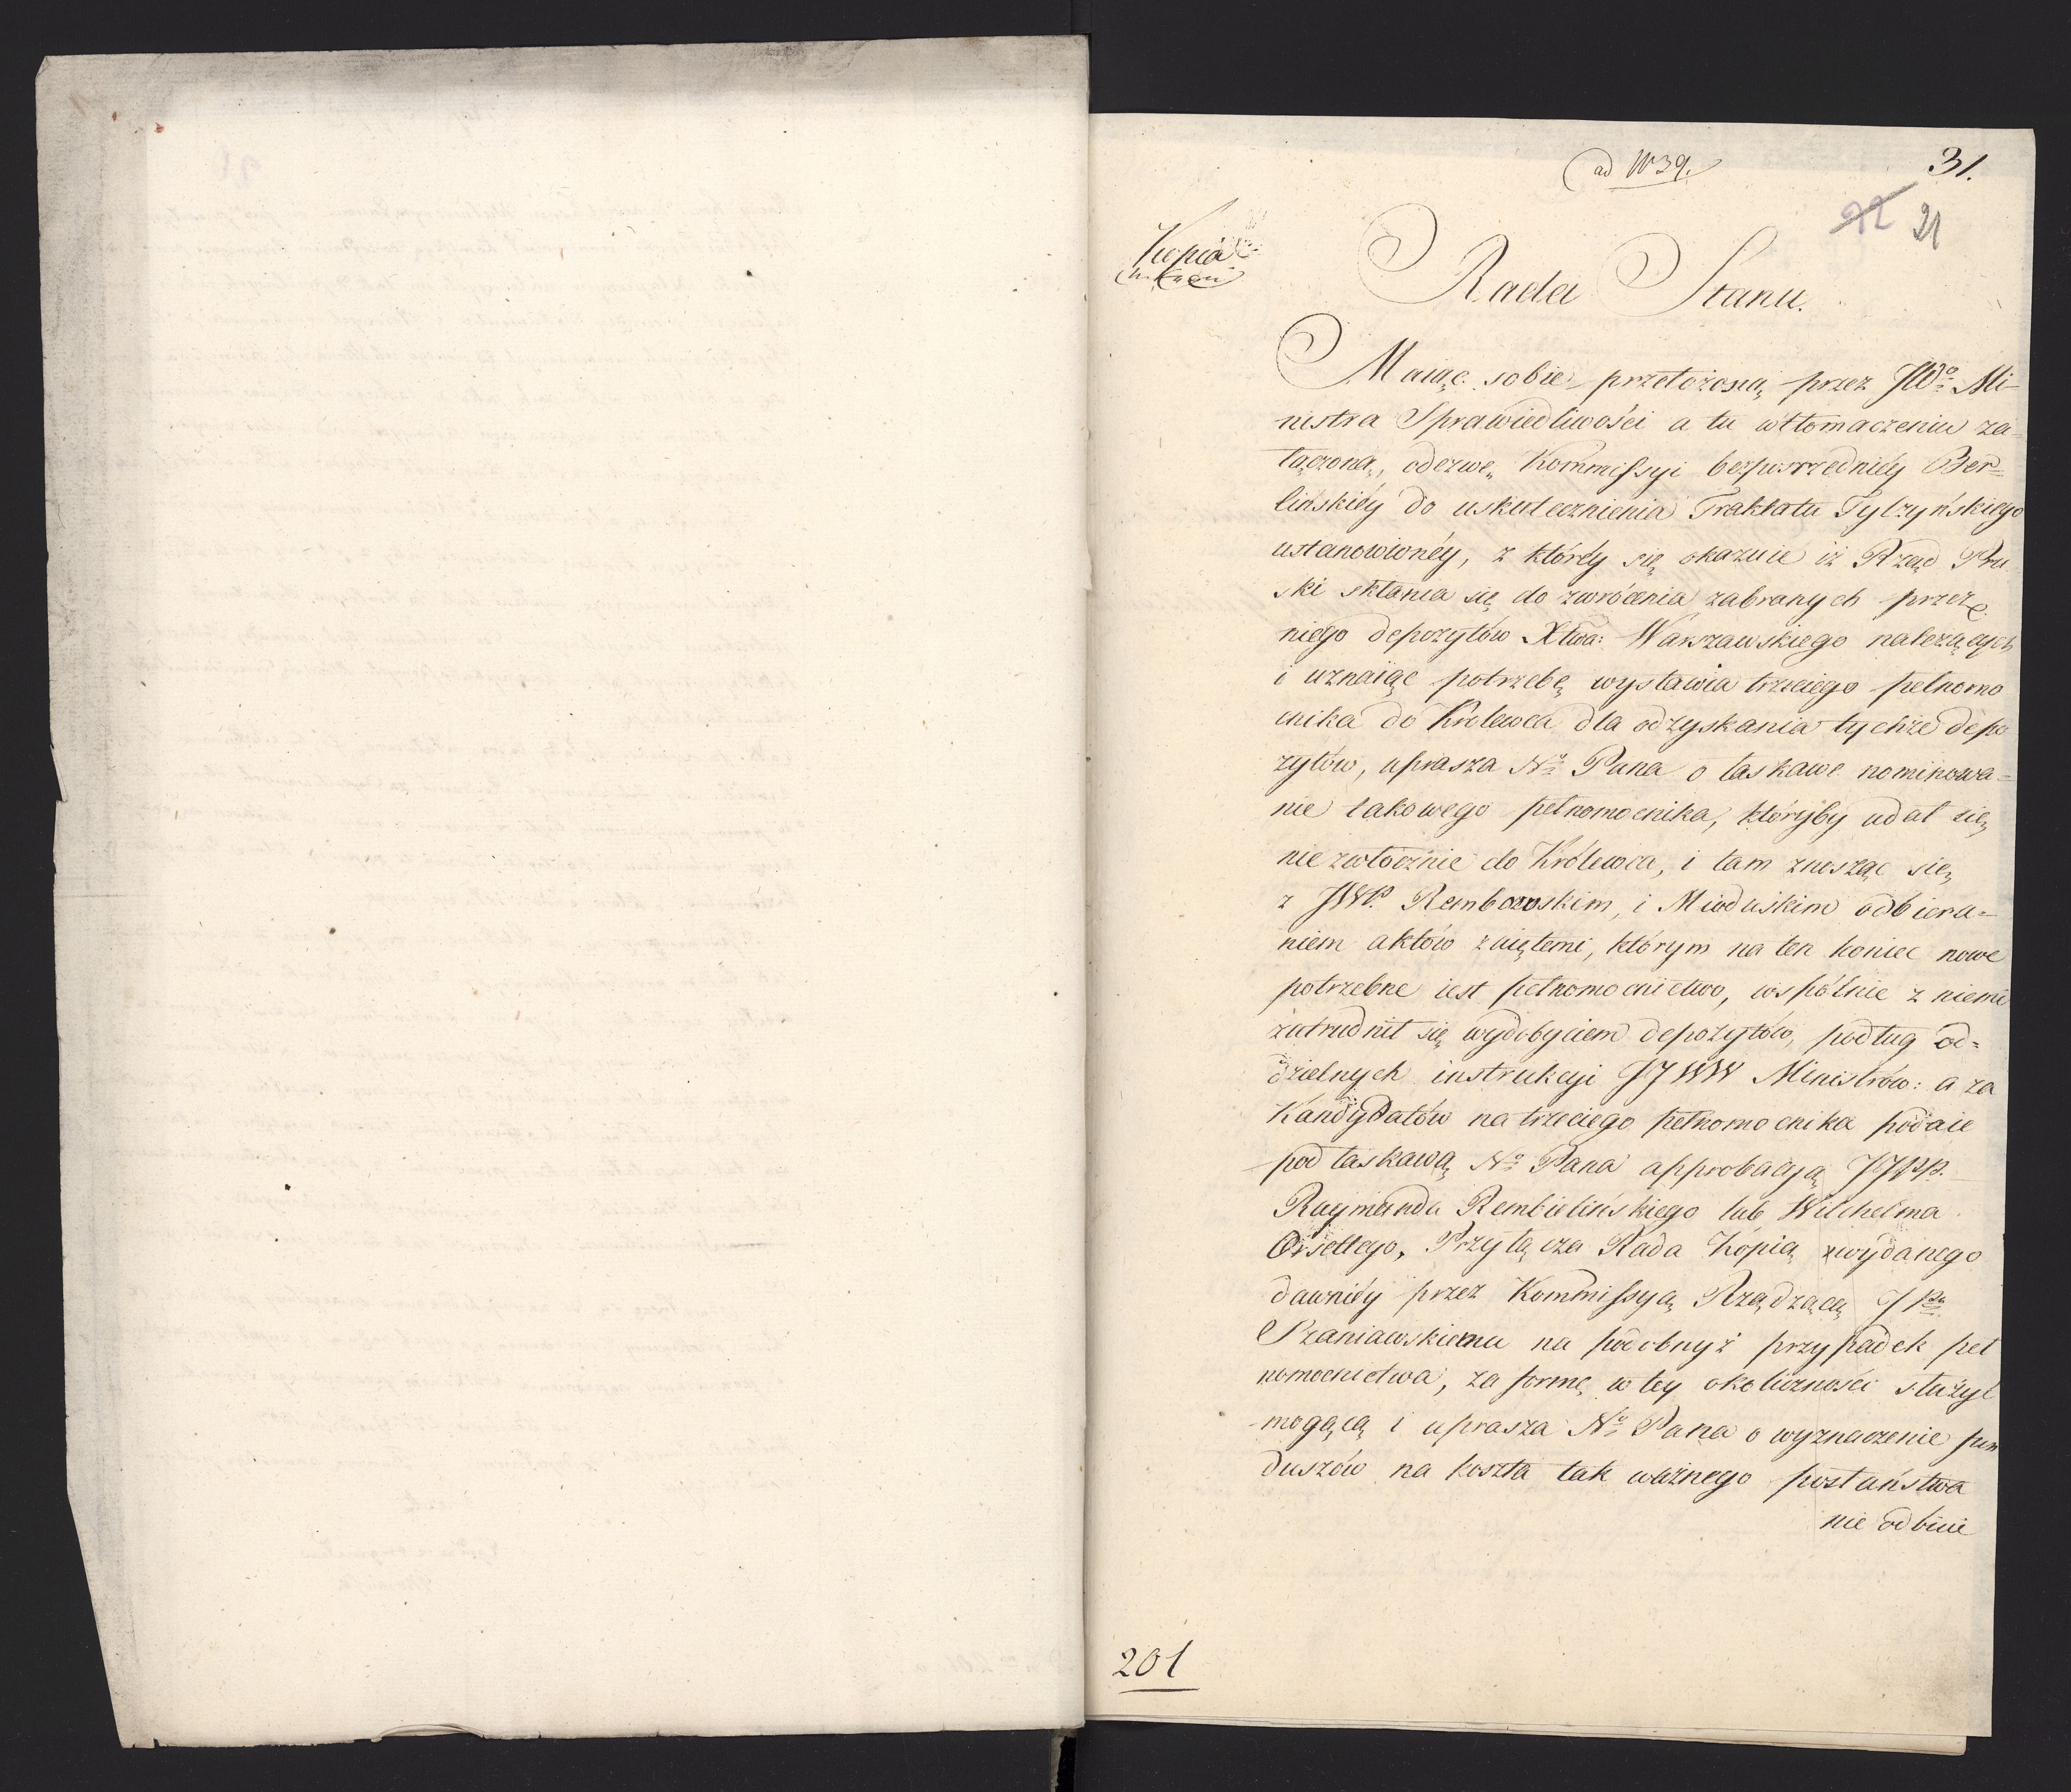 ad N 39.
31.
22 21
Kopia
Rada Stanu.
Maiąc sobie przełożoną przez JWo Mi-
nistra Sprawiedliwości a tu w tłomaczeniu za-
łączoną, odezwę Kommissyi bezpośrzedniéy Ber-
lińskiéy do uskutecznienia Traktatu Tylżyńskiego
ustanowionéy, z któréy się okazuie iż Rząd Pru
ski skłania się do zwrócenia zabranych przez
niego depozytów Xtwa: Warszawskiego należących
i uznaiąc potrzebę wysłania trzeciego pełnomo
cnika do Królewca dla odzyskania tychże depo
zytów, uprasza No Pana o łaskawe nominowa-
nie takowego pełnomocnika, któryby udał się
niezwłocznie do Królewca, i tam znosząc się
z JWP. Rembowskim, i Miaduskim odbiera-
niem aktów zaiętemi, którym na ten koniec nowe
potrzebne iest pełnomocnictwo, wspólnie z niemi
zatrudnił się wydobyciem depozytów, podług od-
dzielnych instrukcyi JJWW Ministrów: a za
Kandydatów na trzeciego pełnomocnika podaie
pod łaskawą No Pana approbacyą JJPP.
Raymunda Rembielińskiego lub Wilchelma
Orsettego, Przyłącza Rada Kopią wydanego
dawniéy przez Kommissyą Rządzącą JPu
Szaniawskiemu na podobnyż przypadek peł
nomocnictwa, za formę w tey okoliczności służyć
mogącą i uprasza No Pana o wyznaczenie fun
duszów na koszta tak ważnego posłaństwa
nie odbicie
201